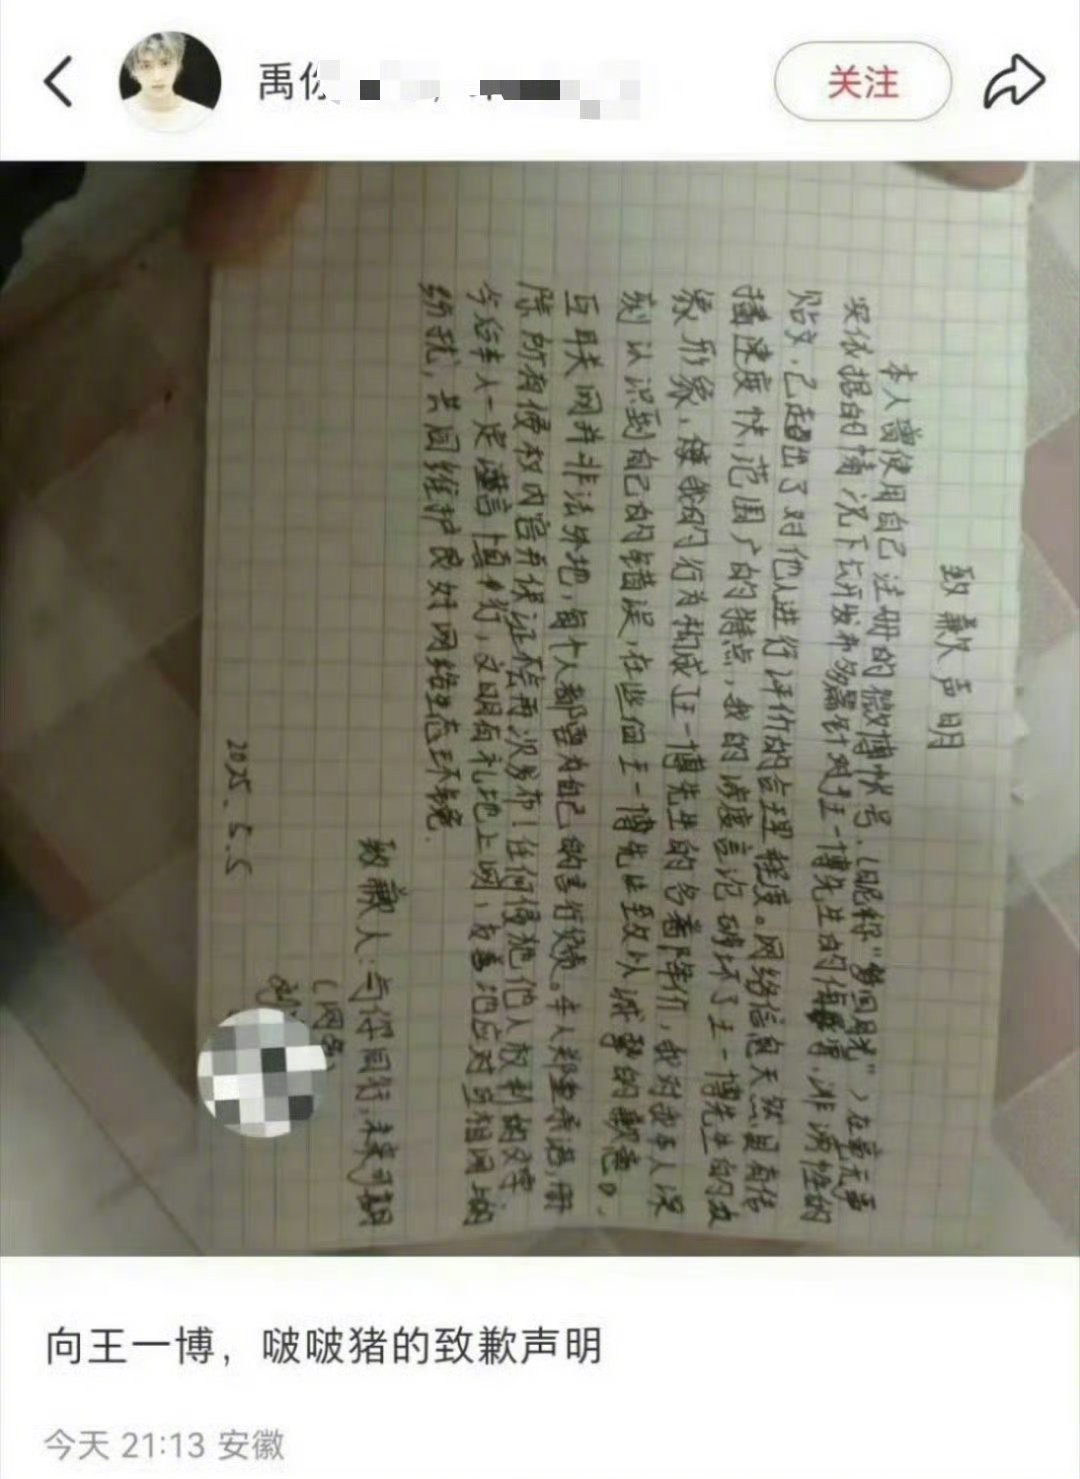 禹你
关注
致歉声明
本人曾使用自己注册的微博帐号,(昵称"梦回 "),在毫无事
实依据的情况下公开发布多篇针对王一博先生的侮辱、诽谤性的
贴文,已超出了对他人进行评价的合理程度。网络信息天然具有传
播速度快,范围广的特点,我的涉虚言论破坏了王一博先生的
象形象,使我的行为构成王一博先生的名 降价,我对 本人深
刻认识到自己的错误,在此向王一博先生致以诚挚的歉意。
互联网并非法外地,每个人都要为自己的言行负责。本人郑重承诺,删
除所有侵权内容并保证不会再次发布!任何侵犯他人权利的文字
今后本人一定谨言慎行,文明有礼地上网,友善地应对互相网上的
纷扰,共同维护良好网络生态环境.
致歉人:与你同行,未来可期
(网名)
2025.5.5
向王一博,啵啵猪的致歉声明
今天 21:13 安徽